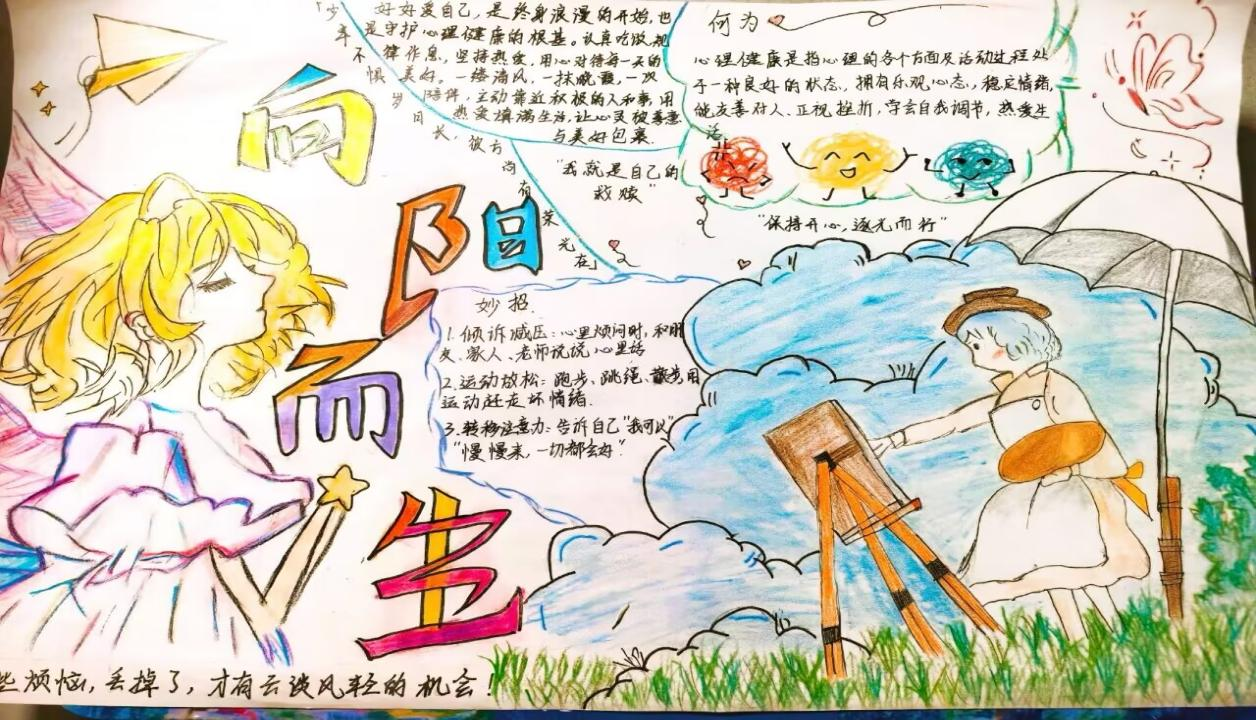 好好爱自己，是终身浪漫的开始，也
是守护心理健康的根基。认真吃饭，规
律作息，坚持热爱，用心对待每一天的
美好。一缕清风，一抹晚霞，一次
陪伴，主动靠近积极的人和事，用
热爱填满生活，让心灵被善意
与美好包裹。
「少年不惧岁月长，彼方尚有荣光在」
何为
心理健康是指心理的各个方面及活动过程处
于一种良好的状态，拥有乐观心态，稳定情绪，
能友善对人、正视挫折，学会自我调节，热爱生
活
"我就是自己的
救赎"
"保持开心，逐光而行"
向阳而生
妙招
1.倾诉减压：心里烦闷时，和朋
友、家人、老师说说心里话
2.运动放松：跑步、跳绳、散步，用
运动赶走坏情绪.
3.转移注意力：告诉自己"我可以"
"慢慢来，一切都会好"
些烦恼，丢掉了，才有云淡风轻的机会！